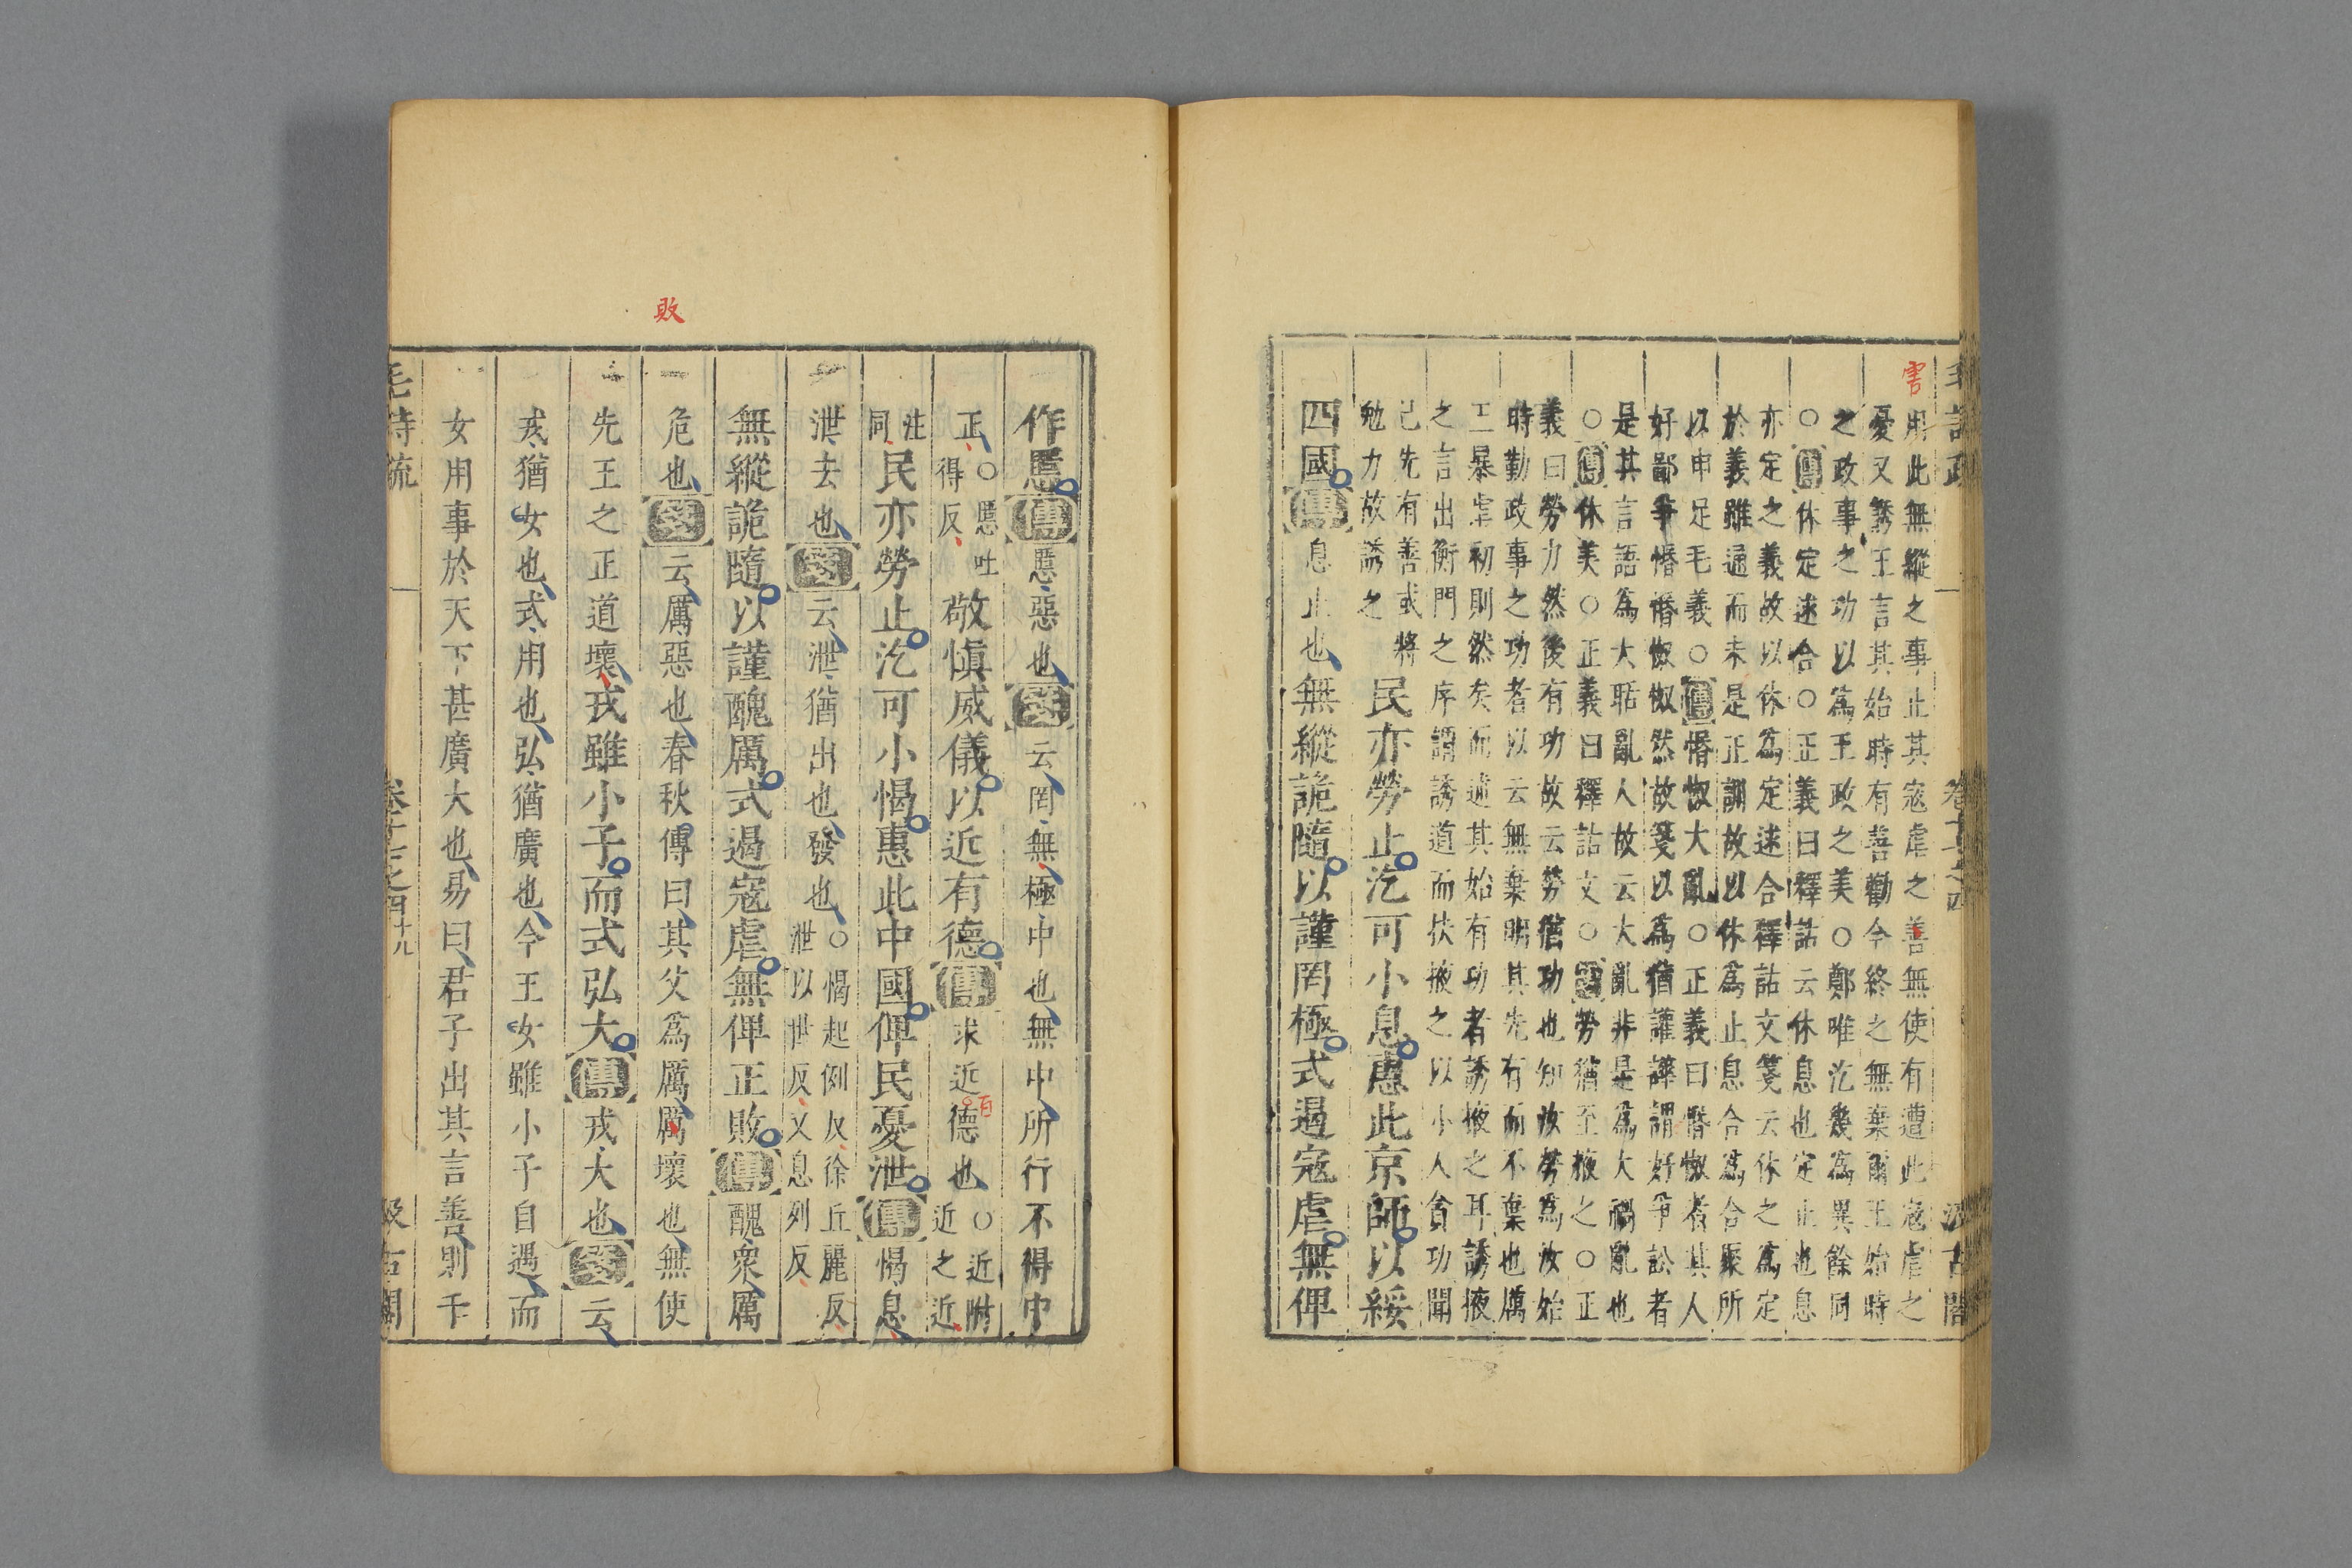 害
用此無縱之事止其寇虐之善無使有遭此寇虐之
憂又誘王言其始時有善勸今終之無棄爾王始時
之政事之功以為王政之美○鄭唯汔幾為異餘同
○傳休定逑合○正義曰釋詁云休息也定止也息
亦定之義故以休為定逑合釋詁文箋云休之為定
於義雖通而未是正訓故以休為止息合為合聚所
以申足毛義○傳惛怓大亂○正義曰惛怓者其人
好鄙爭惛惛怓怓然故箋以為猶讙譁謂好爭訟者
是其言語為大聒亂人故云大亂非是為大禍亂也
○傳休美○正義曰釋詁文○箋勞猶至掖之○正
義曰勞力然後有功故云勞猶功也知汝勞為汝始
時勤政事之功者以云無棄明其先有而不棄也厲
王暴虐初則然矣而述其始有功者誘掖之耳誘掖
之言出衡門之序謂誘道而扶掖之以小人貪功聞
己先有善或將
勉力故誘之
民亦勞止汔可小息惠此京師以綏
四國傳息止也無縱詭隨以謹罔極式遏寇虐無俾
作慝傳慝惡也箋云罔無極中也無中所行不得中
正○慝吐得反敬慎威儀以近有德傳求近德也○近附近之近
百
注同民亦勞止汔可小愒惠此中國俾民憂泄傳愒息
泄去也箋云泄猶出也發也○愒起例反徐丘麗反泄以世反又息列反
無縱詭隨以謹醜厲式遏寇虐無俾正敗傳醜眾厲
敗
危也箋云厲惡也春秋傳曰其父為厲厲壞也無使
先王之正道壞戎雖小子而式弘大傳戎大也箋云
戎猶女也式用也弘猶廣也今王女雖小子自遇而
女用事於天下甚廣大也易曰君子出其言善則千
毛詩疏
卷十七之四
十九
汲古閣